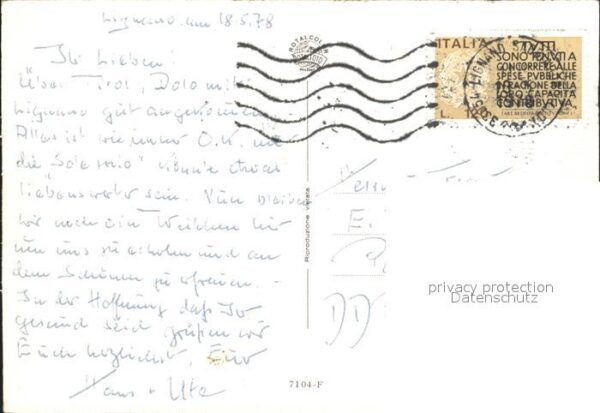 Lignano am 18.5.78
Ihr Lieben!
Über Tirol, Dolomiten
Lignano gut angekommen
Alles ist wie immer O.K. nur
die "Sole mio" könnte etwas
liebenswerter sein. Nun bleiben
wir noch ein Weilchen hier
um uns zu erholen und an
dem Schönen zu erfreuen. -
In der Hoffnung daß Ihr
gesund seid grüßen wir
Euch herzlichst, Eure
Hans + Ute
ROTALCOLOR
Riproduzione vietata
7104-F
ITALIA
SONO TENUTI A
CONCORRERE ALLE
SPESE PUBBLICHE
IN RAGIONE DELLA
LORO CAPACITÀ
CONTRIBUTIVA
L.
LIGNANO
E.
DD
privacy protection
Datenschutz